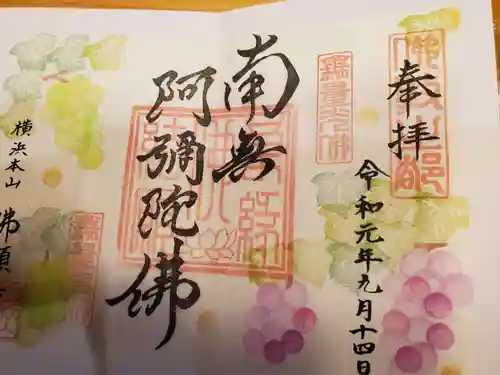 奉拝
令和元年九月十四日
無量光佛
南無
阿彌陀佛
横浜本山
佛願